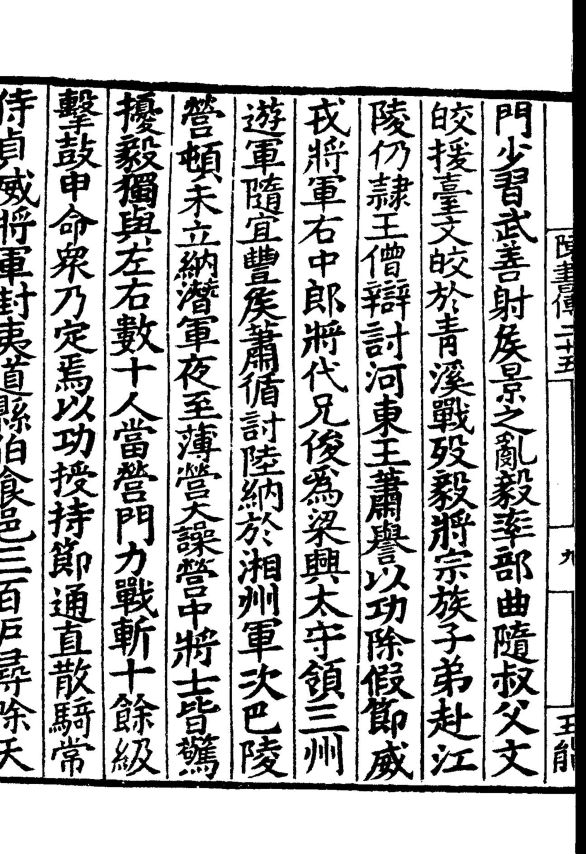 陳書傳二十五
九
王能
門少習武善射矦景之亂毅率部曲隨叔父文
皎援臺文皎於青溪戰歿毅將宗族子弟赴江
陵仍隷王僧辯討河東王蕭譽以功除假節威
戎將軍右中郎將代兄俊爲梁興太守領三州
遊軍隨宜豐矦蕭循討陸納於湘州軍次巴陵
營頓未立納潛軍夜至薄營大譟營中將士皆驚
擾毅獨與左右數十人當營門力戰斬十餘級
擊鼓申命衆乃定焉以功授持節通直散騎常
侍貞威將軍封夷道縣伯食邑三百戶尋除天